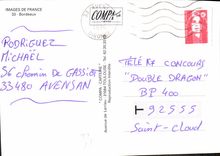 IMAGES DE FRANCE
33 - Bordeaux
RODRIGUEZ
MICHAËL
56 chemin du GASSIOT
33480 AVENSAN
TÉLÉ K7 CONCOURS
"DOUBLE DRAGON"
BP 400
92555
Saint-Cloud